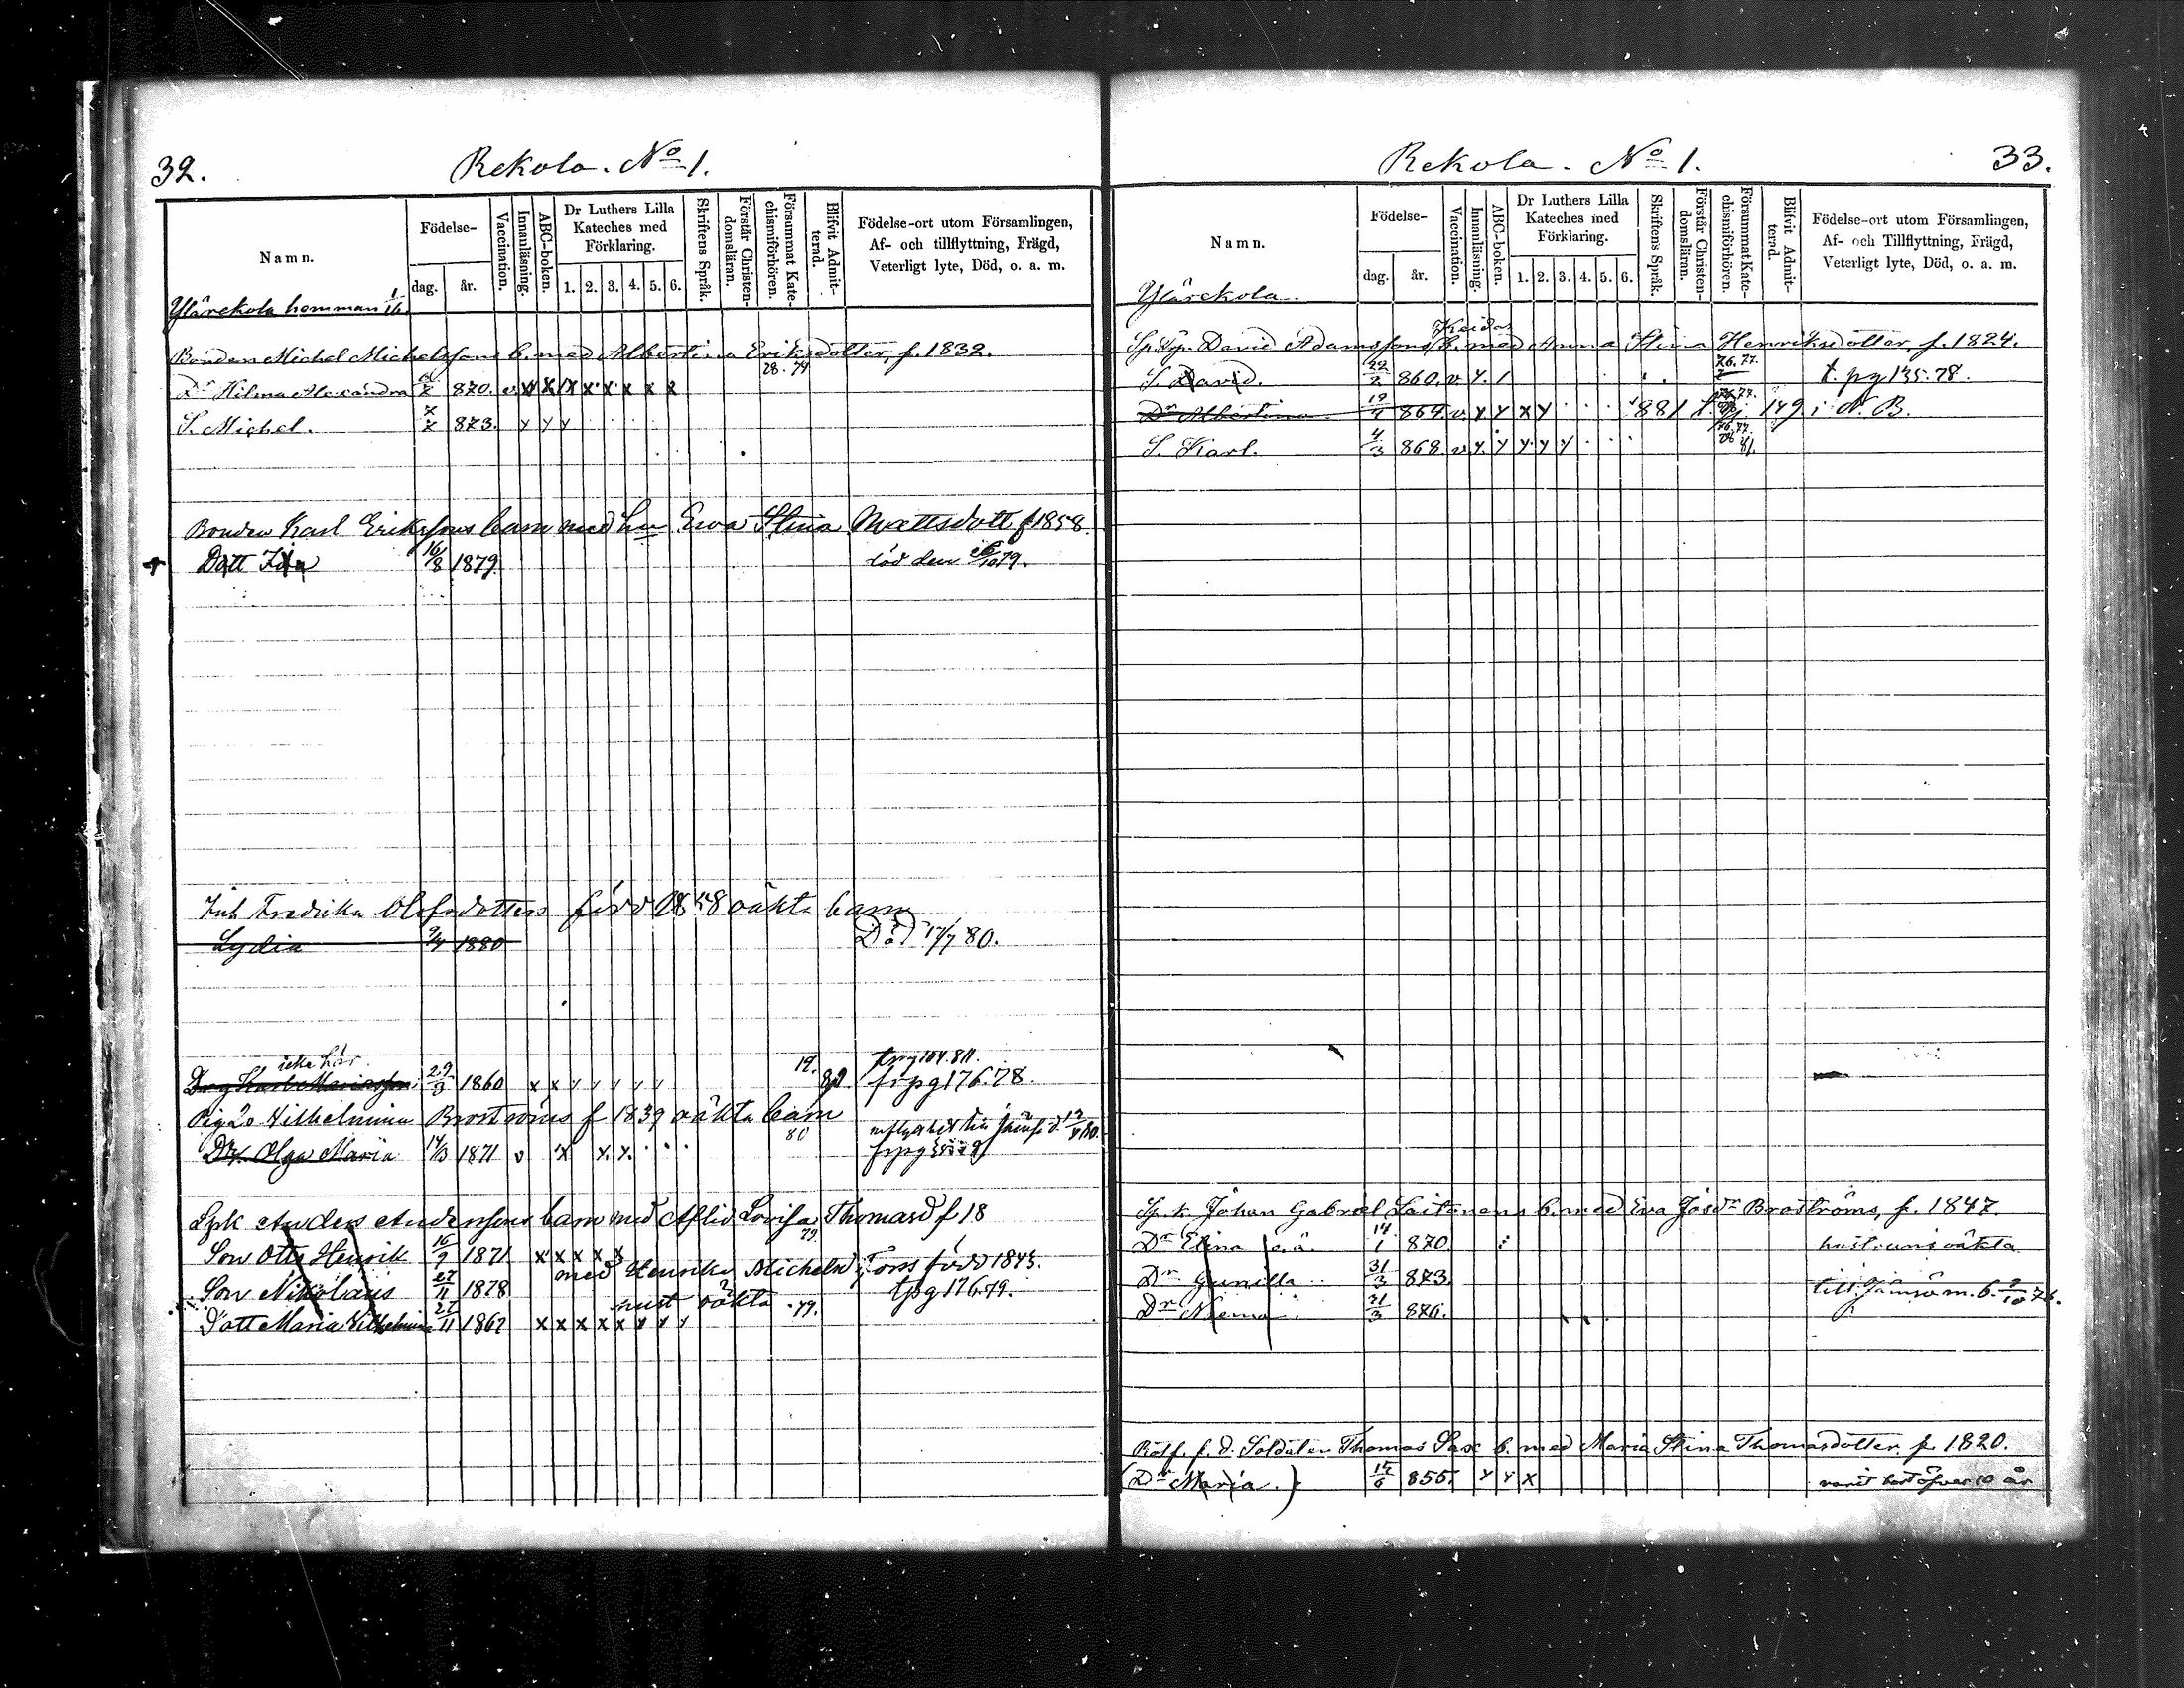 32.
Rekola. No 1.
Namn.
Födelse-
dag.
år.
Vaccination.
Innanläsning.
ABC-boken.
Dr Luthers Lilla Kateches med Förklaring.
1. 2. 3. 4. 5. 6.
Skriftens Språk.
Förstår Christendomsläran.
Försummat Katechismiförhören.
Blifvit Admitterad.
Födelse-ort utom Församlingen,
Af- och tillflyttning, Frägd,
Veterligt lyte, Död, o. a. m.
Ylärekola hemman 1/6
Bonden Michel Michelssons b. med Albertina Eriksdotter, f. 1832.
28. 79
Dr Hilma Alexandra 870. v x x x x x x x x x
S. Michel. 873. y y y
Bonden Karl Erikssons barn med hu Ewa Stina Mattsdott f 1858
Dott Ida 16/8 1879 död den /10 79.
Inh Fredrika Olofsdotters född 1858 oäkta barn
Lydia 9/4 1880 Död 17/7 80.
icke här
tpg 104.811.
29/3 1860 x x y y y y y 19. 80 frpg 176.78.
Pig Vilhelmina Broströms f 1839 oäkta barn
80
Dr. Olga Maria 14/3 1871 v x x. x.
Spk Anders Anderssons barn med Aflid Lovisa Thomasd f 18
79.
Son Otto Henrik 16/9 1871 x x x x x
med Henrika Michelsd Törs född 1845.
Son Nikolaus 27/11 1878 tpg 176.79.
hust oäkta 79.
Dott Maria Vilhelmina 27/11 1867 x x x x x y y y
33.
Rekola. No 1.
Namn.
Födelse-
dag.
år.
Vaccination.
Innanläsning.
ABC-boken.
Dr Luthers Lilla Kateches med Förklaring.
1. 2. 3. 4. 5. 6.
Skriftens Språk.
Förstår Christendomsläran.
Försummat Katechismiförhören.
Blifvit Admitterad.
Födelse-ort utom Församlingen,
Af- och Tillflyttning, Frägd,
Veterligt lyte, Död, o. a. m.
Ylärekola.
David Adamssons b. med Anna Stina Henriksdotter, f. 1824.
76. 77.
S. David. 22/2 860. v y. 1 t. pg 135. 78.
Dr Albertina 19/4 864. v y y x y 1881 t. 149 i N. B.
76. 77.
S. Karl. 4/3 868. v y. y y. y y 81.
Sp. k. Johan Gabriel Laitonens b. med Eva Josdr Broströms, f. 1847.
Dr Elina o. ä. 14/1 870. hustruns oäkta
Dr Gunilla 31/3 873.
till Jämsä m. b. 2/10 76.
Dr Niema 31/3 876.
Rotf. f. d. Soldaten Thomas Sax b. med Maria Stina Thomasdotter f. 1820.
(Dr Maria.) 15/6 855. y y x varit bort öfver 10 år